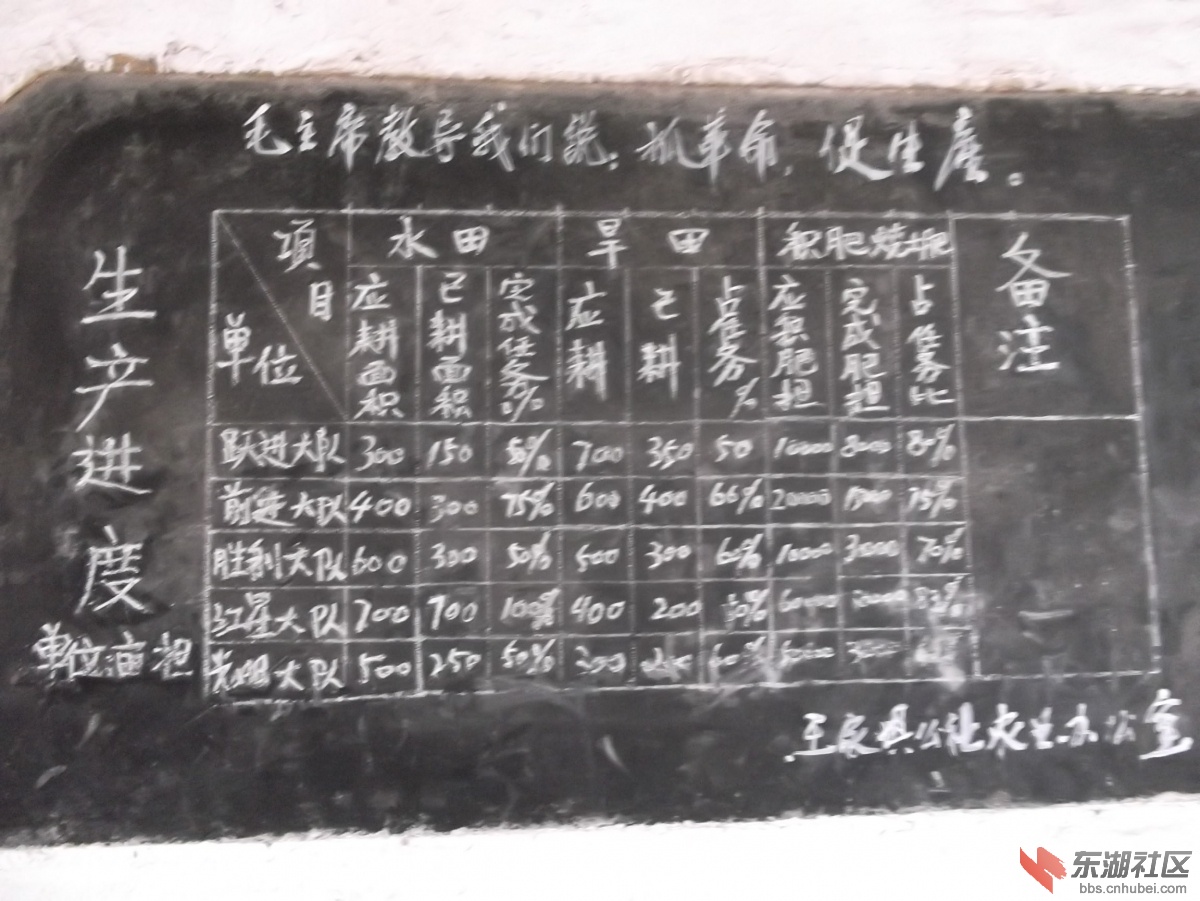 毛主席教导我们说：抓革命，促生产。
生产进度
单位 亩·担
项目 水田 旱田 积肥烧肥 备注
单位 应耕面积 已耕面积 完成任务% 应耕 已耕 占任务% 应积肥担 完成肥担 占任务比
跃进大队 300 150 50% 700 350 50 10000 8000 80%
前进大队 400 300 75% 600 400 66% 20000 75%
胜利大队 600 300 50% 500 300 60% 10000 70%
红星大队 700 700 100% 400 200
光明大队 500 250 50% 300 60%
公社农业办公室
东湖社区
bbs.cnhubei.com